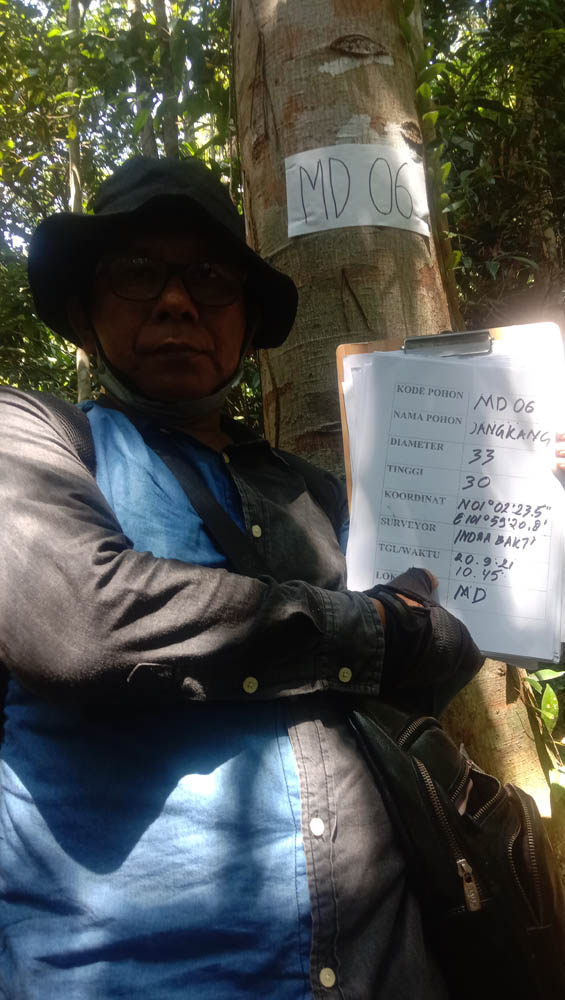 MD 06
KODE POHON MD 06
NAMA POHON JANGKANG
DIAMETER 33
TINGGI 30
KOORDINAT N01°02'23.5"
E101°59'20.8'
SURVEYOR INDRA BAKTI
TGL/WAKTU 20.9.21
10.45
MD